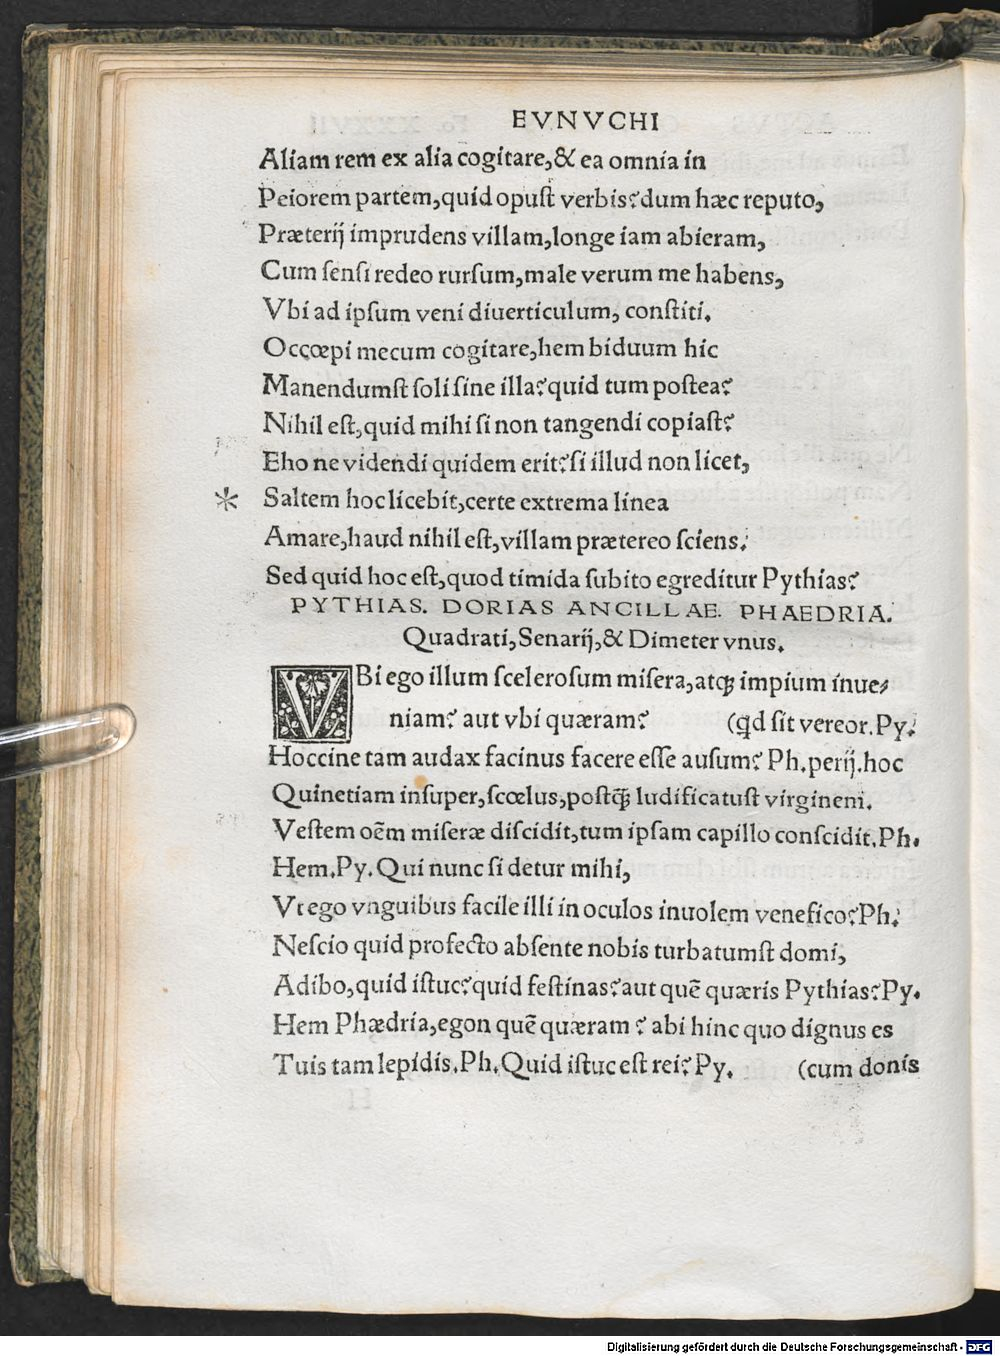 EVNVCHI
Aliam rem ex alia cogitare,& ea omnia in
Peiorem partem,quid opust verbis? dum hæc reputo,
Præterij imprudens villam,longe iam abieram,
Cum sensi redeo rursum,male verum me habens,
Vbi ad ipsum veni diuerticulum, constiti.
Occœpi mecum cogitare,hem biduum hic
Manendumst soli sine illa? quid tum postea?
Nihil est,quid mihi si non tangendi copiast?
Eho ne videndi quidem erit? si illud non licet,
* Saltem hoc licebit,certe extrema linea
Amare,haud nihil est,villam prætereo sciens.
Sed quid hoc est,quod timida subito egreditur Pythias?
PYTHIAS. DORIAS ANCILLAE. PHAEDRIA.
Quadrati, Senarij,& Dimeter vnus.
VBi ego illum scelerosum misera,atq; impium inue-
niam? aut vbi quæram? (qd sit vereor.Py.
Hoccine tam audax facinus facere esse ausum? Ph.perij.hoc
Quinetiam insuper,scœlus,postq̃ ludificatust virgineni.
Vestem oẽm miseræ discidit,tum ipsam capillo conscidit.Ph.
Hem.Py.Qui nunc si detur mihi,
Vt ego vnguibus facile illi in oculos inuolem venefico? Ph.
Nescio quid profecto absente nobis turbatumst domi,
Adibo,quid istuc? quid festinas? aut quẽ quæris Pythias? Py.
Hem Phædria,egon quẽ quæram? abi hinc quo dignus es
Tuis tam lepidis.Ph.Quid istuc est rei? Py. (cum donis
Digitalisierung gefördert durch die Deutsche Forschungsgemeinschaft - DFG